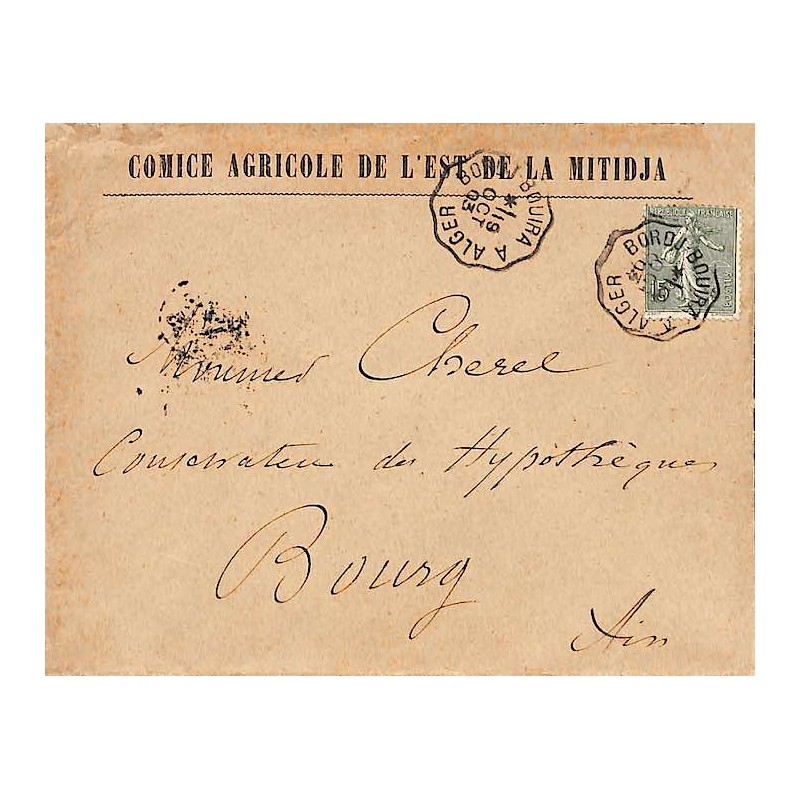 COMICE AGRICOLE DE L'EST DE LA MITIDJA
BORDJ-BOUIRA A ALGER
19
OCT
03
REPUBLIQUE FRANÇAISE
15c
POSTES
BORDJ-BOUIRA A ALGER
Monsieur Cherel
Conservateur des Hypothèques
Bourg
Ain